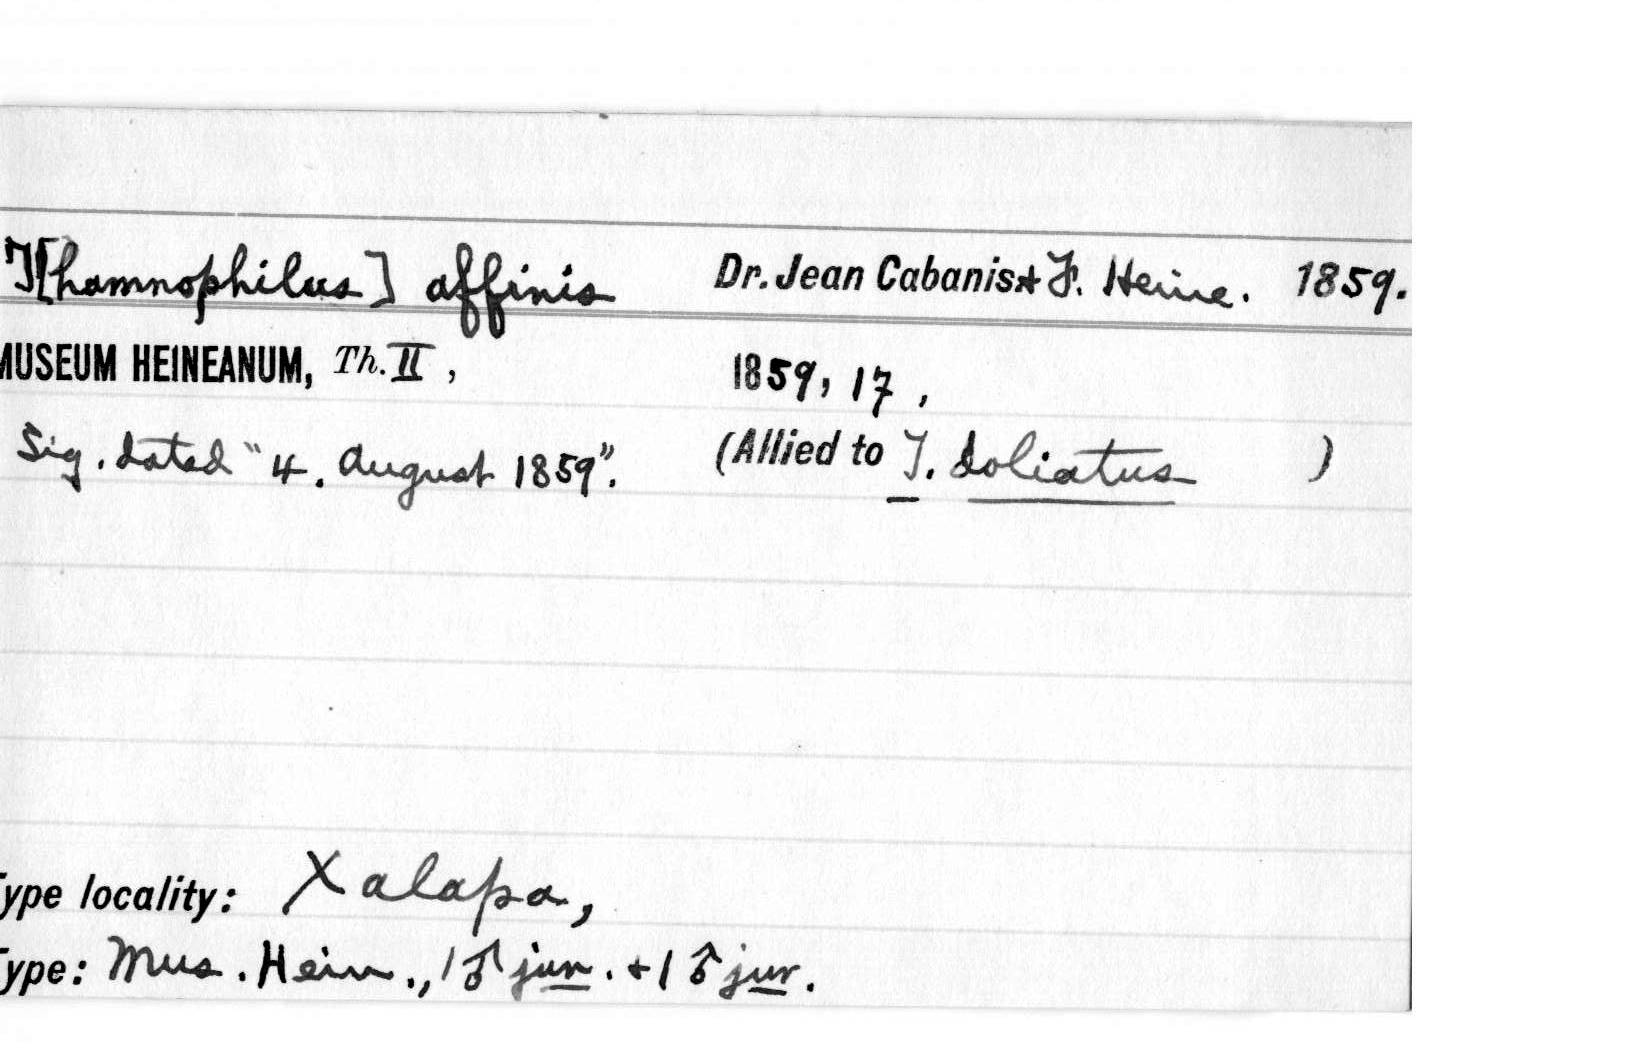 T[hamnophilus] affinis Dr. Jean Cabanis + F. Heine. 1859.
MUSEUM HEINEANUM, Th. II, 1859, 17,
Sig. dated "4. August 1859". (Allied to T. doliatus )
Type locality: Xalapa,
Type: Mus. Hein., 1 ♂ jun. + 1 ♂ juv.